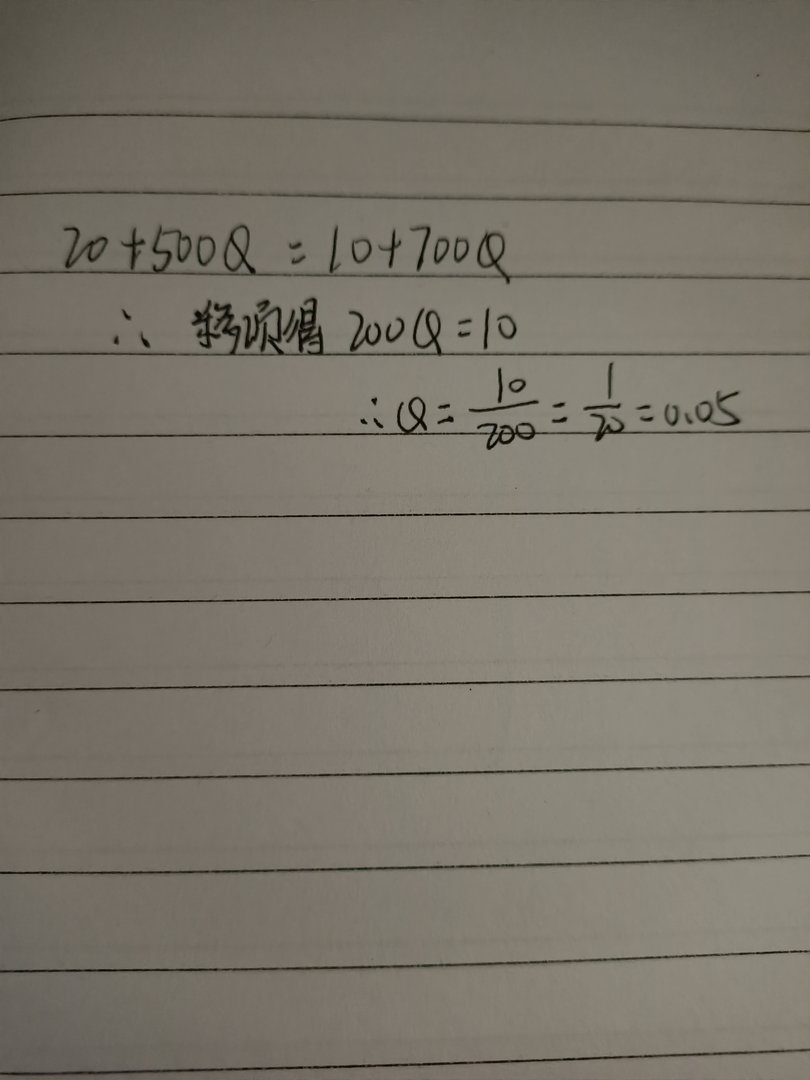 20+500Q=10+700Q
∴ 移项得 200Q=10
∴Q=10/200=1/20=0.05